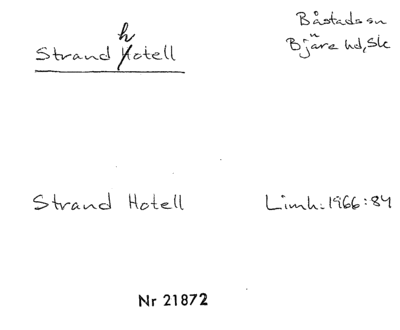 Strand hotell
Båstads sn
Bjäre hd, Sk
Strand Hotell
Limh. 1966:84
Nr 21872